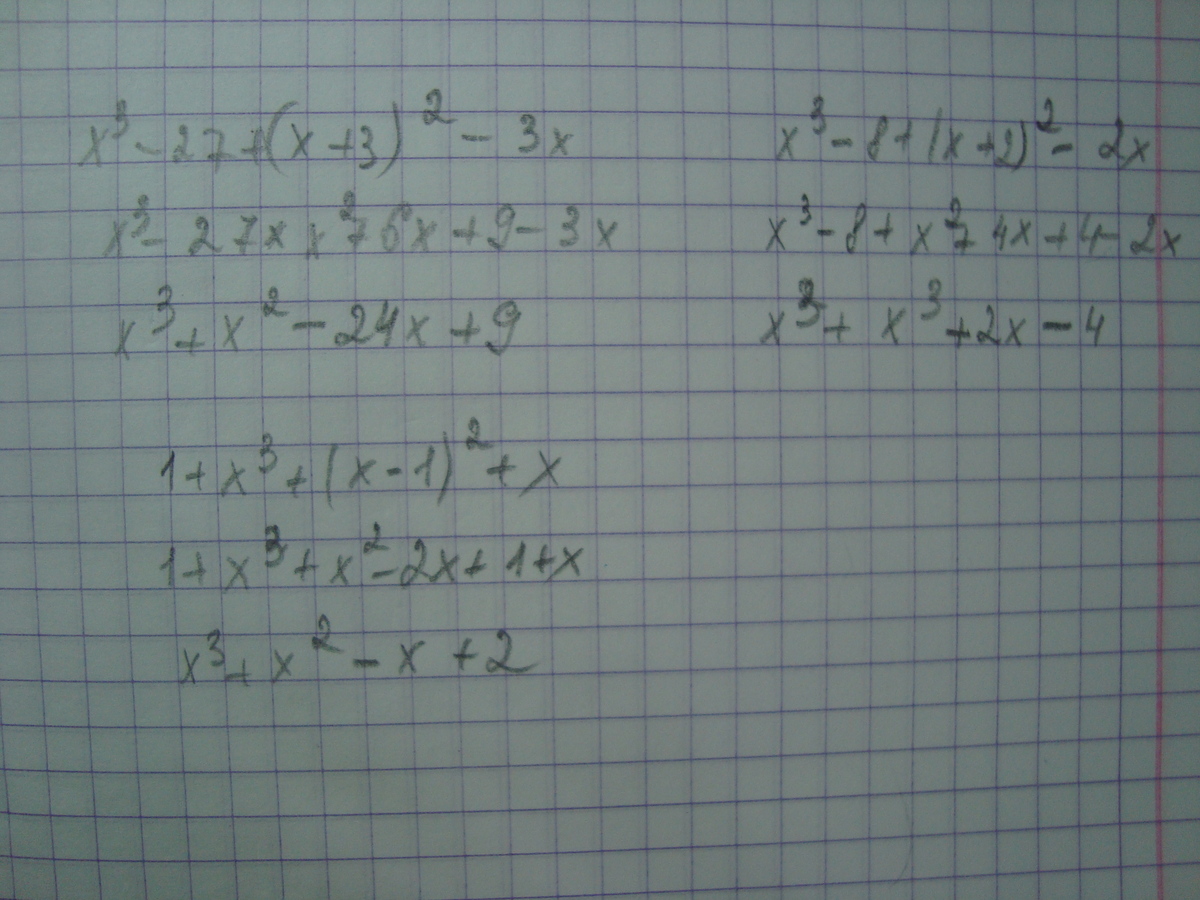 x³ - 27 + (x + 3)² - 3x
x³ - 27x x² + 6x + 9 - 3x
x³ + x² - 24x + 9
x³ - 8 + (x + 2)² - 2x
x³ - 8 + x² + 4x + 4 - 2x
x³ + x³ + 2x - 4
1 + x³ + (x - 1)² + x
1 + x³ + x² - 2x + 1 + x
x³ + x² - x + 2